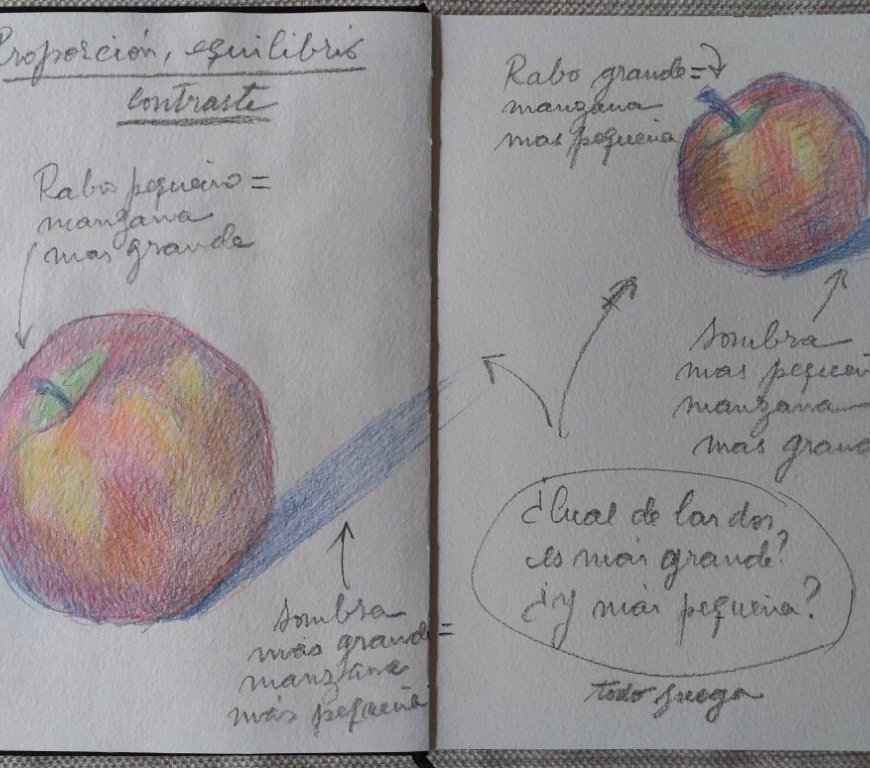 Proporción, equilibrio
contraste
Rabo pequeño =
manzana
mas grande
Sombra
más grande =
manzana
mas pequeña
Rabo grande =
manzana
mas pequeña
Sombra
mas pequeñ
manzana
mas grand
¿Cual de las dos
es más grande?
¿y más pequeña?
todo juega